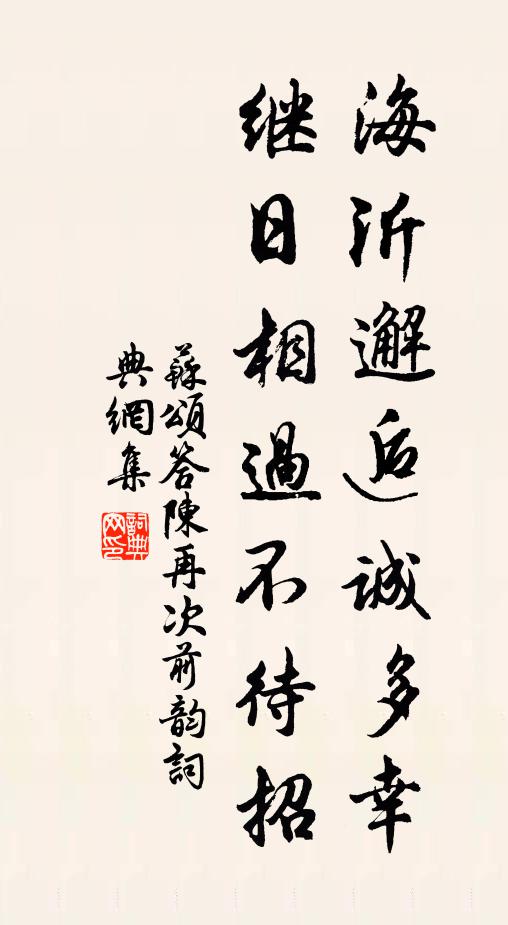 海沂邂逅誠多幸
继日相過不待招
蘇頌答陳再次前韵詞
典網集
詞典
网印